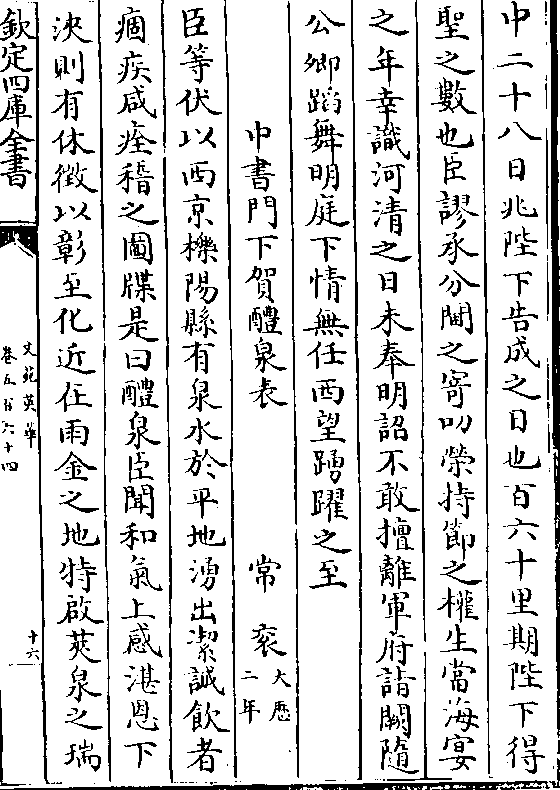 中二十八日兆陛下告成之日也百六十里期陛下得
聖之數也臣謬承分閫之寄叨榮持節之權生當海宴
之年幸識河清之日未奉明詔不敢擅離軍府詣闕隨
公卿蹈舞明庭下情無任西望踴躍之至
中書門下賀醴泉表 常衮 大厯二年
臣等伏以西京櫟陽縣有泉水於平地湧出潔誠飲者
痼疾咸痊稽之圖牒是曰醴泉臣聞和氣上感湛恩下
浹則有休徴以彰至化近在雨金之地特啟荚泉之瑞
欽定四庫全書
文苑英華
卷五百六十四
十六